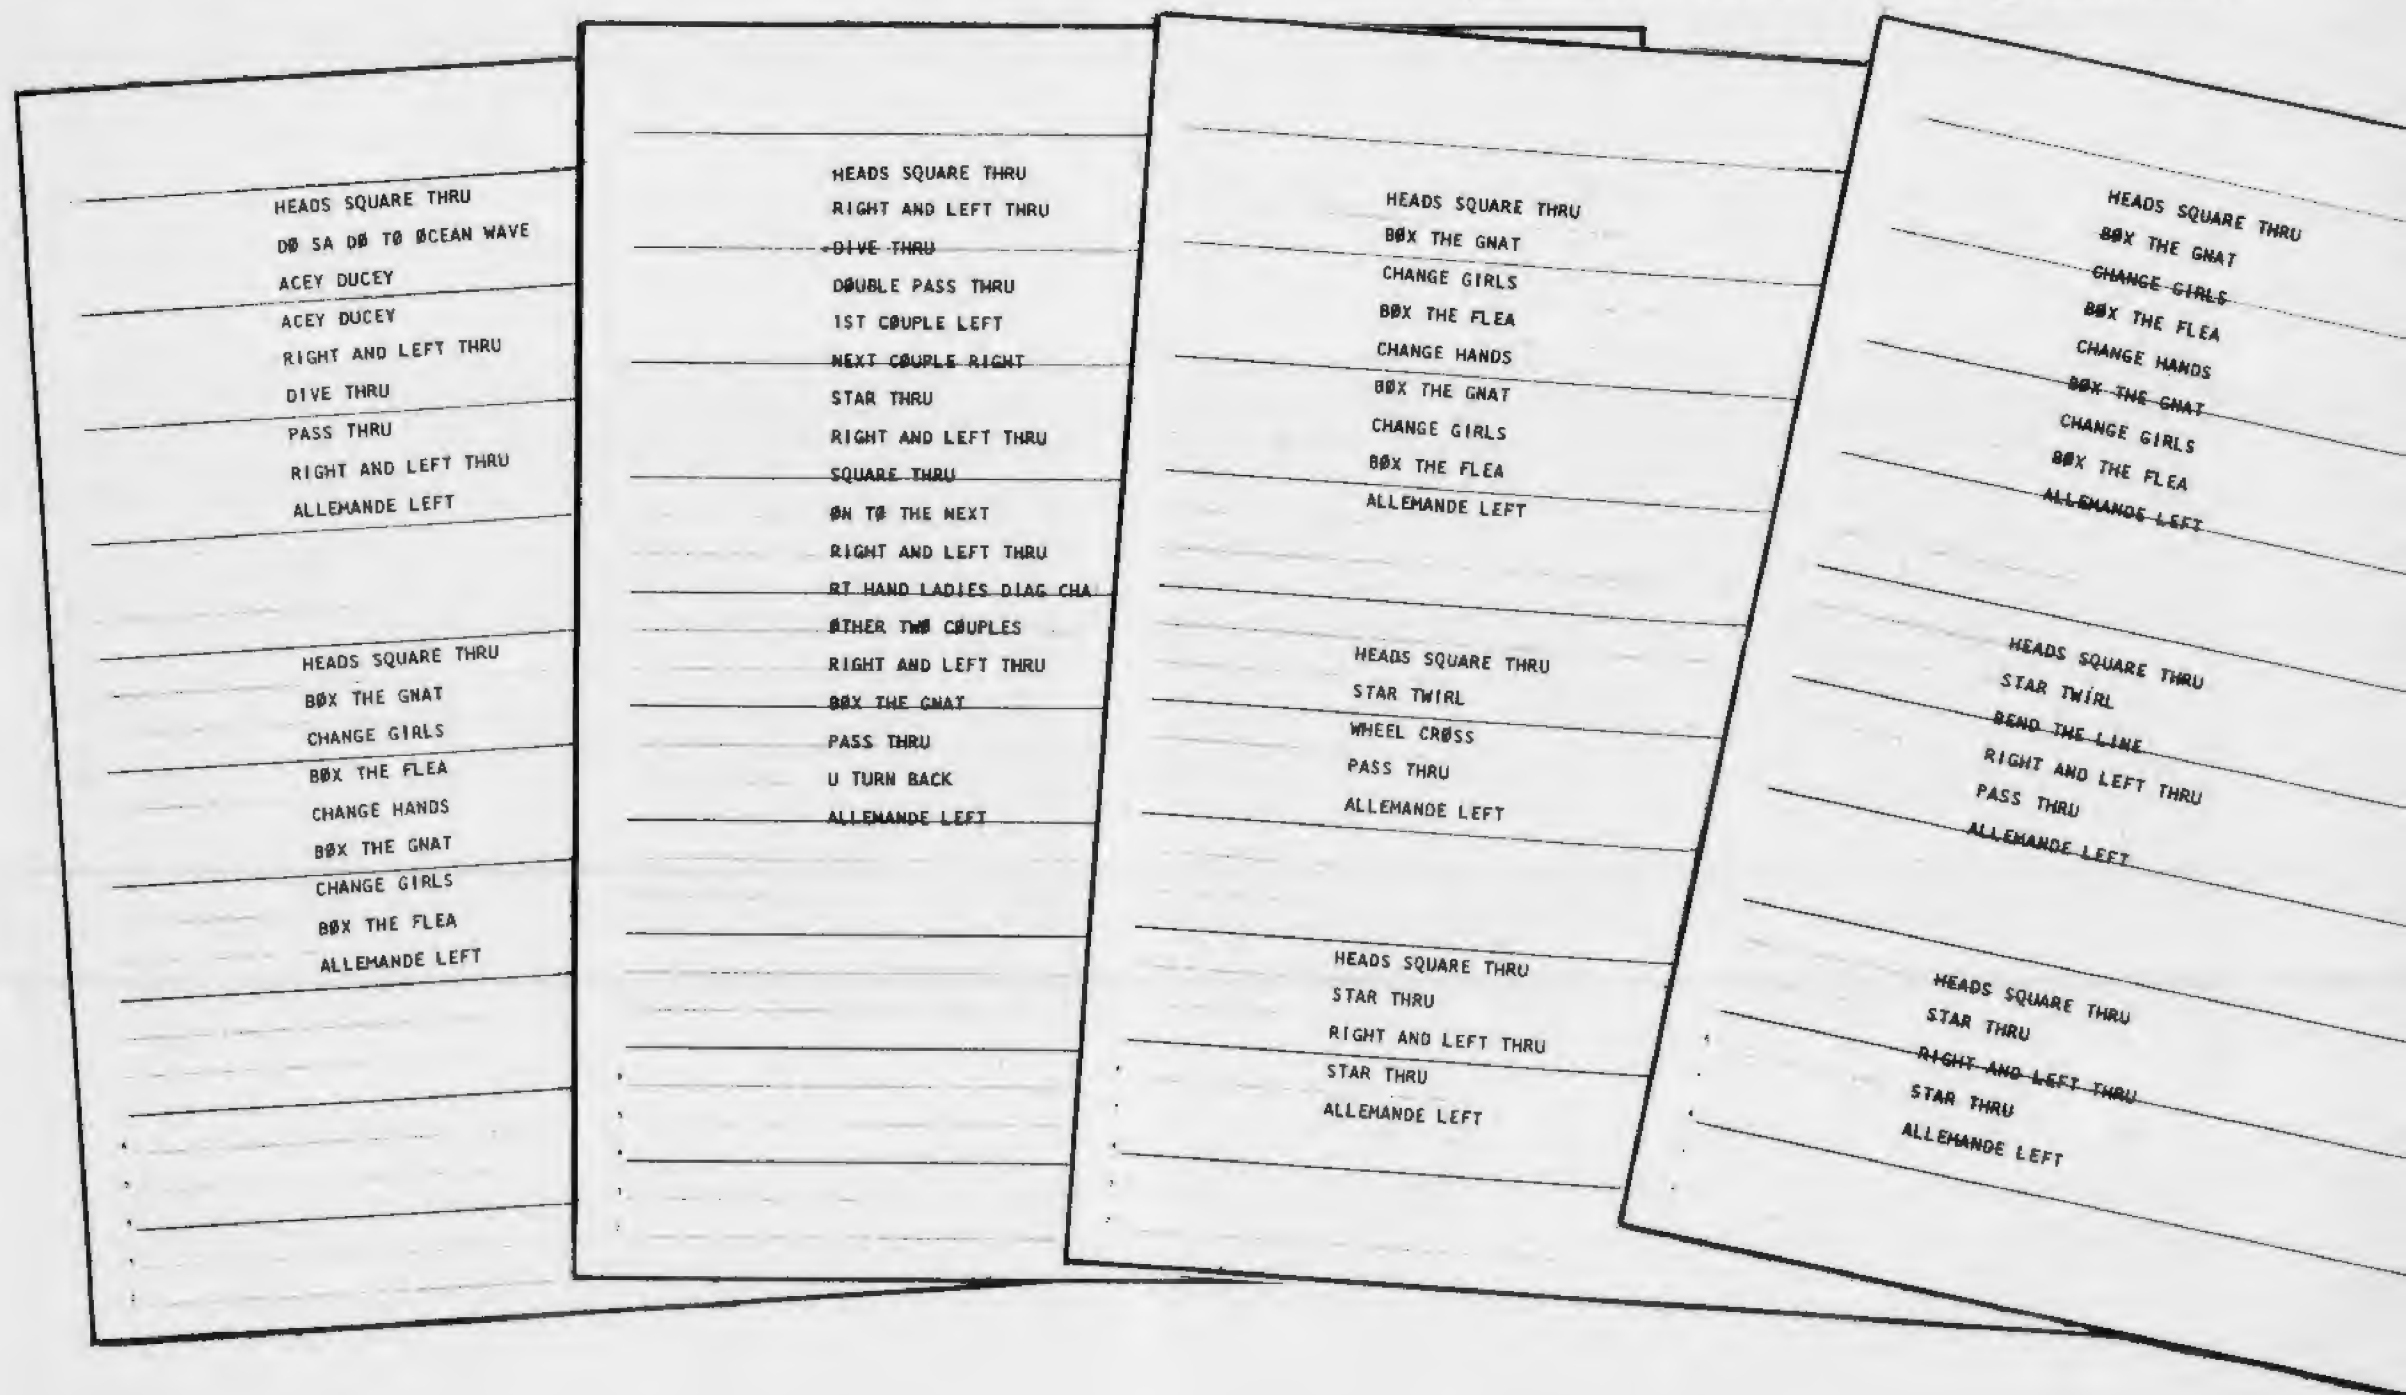 HEADS SQUARE THRU
DØ SA DØ TØ ØCEAN WAVE
ACEY DUCEY
ACEY DUCEY
RIGHT AND LEFT THRU
DIVE THRU
PASS THRU
RIGHT AND LEFT THRU
ALLEMANDE LEFT
HEADS SQUARE THRU
BØX THE GNAT
CHANGE GIRLS
BØX THE FLEA
CHANGE HANDS
BØX THE GNAT
CHANGE GIRLS
BØX THE FLEA
ALLEMANDE LEFT
HEADS SQUARE THRU
RIGHT AND LEFT THRU
DIVE THRU
DØUBLE PASS THRU
1ST CØUPLE LEFT
NEXT CØUPLE RIGHT
STAR THRU
RIGHT AND LEFT THRU
SQUARE THRU
ØN TØ THE NEXT
RIGHT AND LEFT THRU
RT HAND LADIES DIAG CHA
ØTHER TWØ CØUPLES
RIGHT AND LEFT THRU
BØX THE GNAT
PASS THRU
U TURN BACK
ALLEMANDE LEFT
HEADS SQUARE THRU
BØX THE GNAT
CHANGE GIRLS
BØX THE FLEA
CHANGE HANDS
BØX THE GNAT
CHANGE GIRLS
BØX THE FLEA
ALLEMANDE LEFT
HEADS SQUARE THRU
STAR TWIRL
WHEEL CRØSS
PASS THRU
ALLEMANDE LEFT
HEADS SQUARE THRU
STAR THRU
RIGHT AND LEFT THRU
STAR THRU
ALLEMANDE LEFT
HEADS SQUARE THRU
BØX THE GNAT
CHANGE GIRLS
BØX THE FLEA
CHANGE HANDS
BØX THE GNAT
CHANGE GIRLS
BØX THE FLEA
ALLEMANDE LEFT
HEADS SQUARE THRU
STAR TWIRL
BEND THE LINE
RIGHT AND LEFT THRU
PASS THRU
ALLEMANDE LEFT
HEADS SQUARE THRU
STAR THRU
RIGHT AND LEFT THRU
STAR THRU
ALLEMANDE LEFT